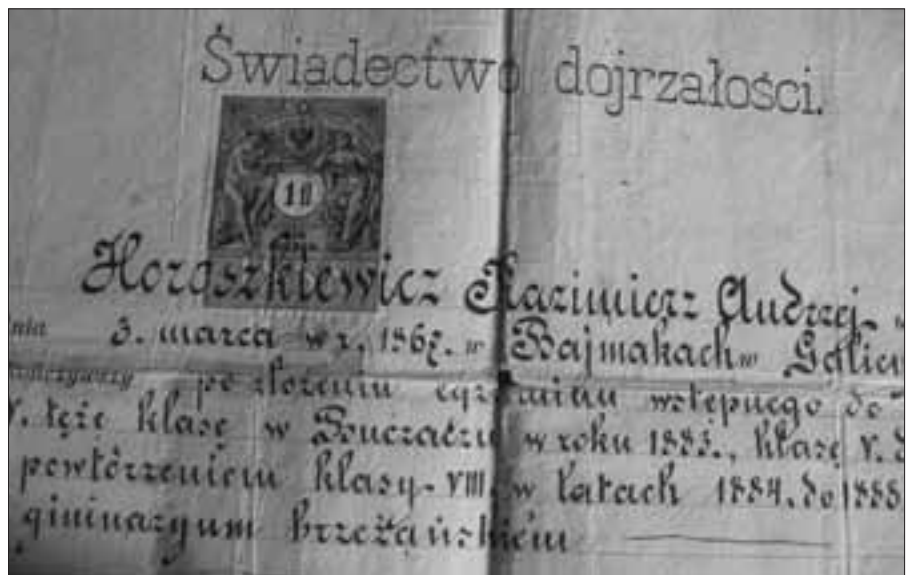 Świadectwo dojrzałości.
10
Horoszkiewicz Kazimierz Andrzej.
dnia 3. marca w r. 1867. w Bajmakach w Galicy
po złożeniu egzaminu wstępnego do
V. tęże klasę w Buczaczu w roku 1883., klasę V. d
powtórzeniem klasy VIII. w latach 1884. do 1888
gimnazyum brzeżańskiem